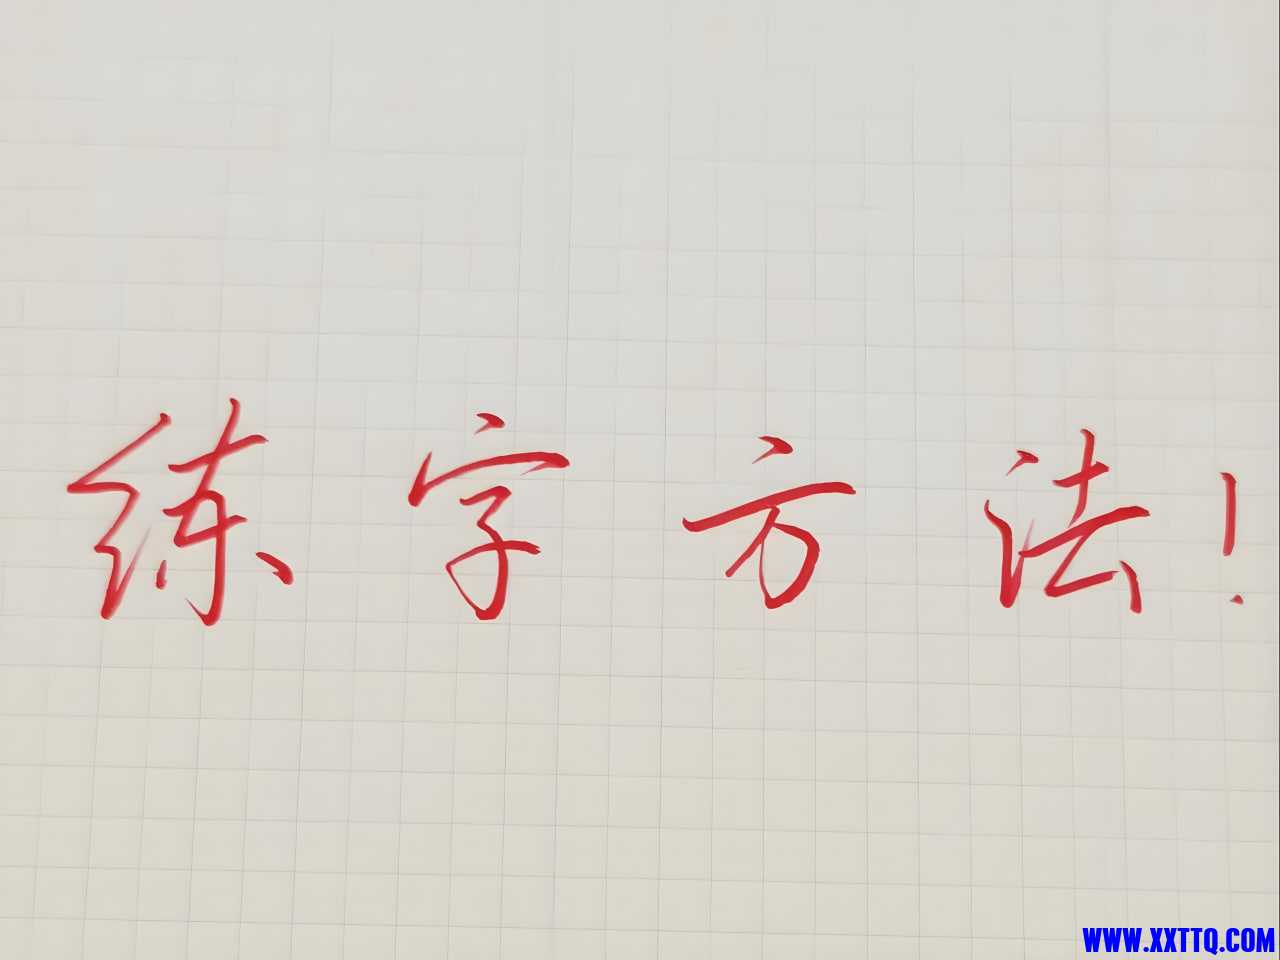 练字方法！
WWW.XXTTQ.COM